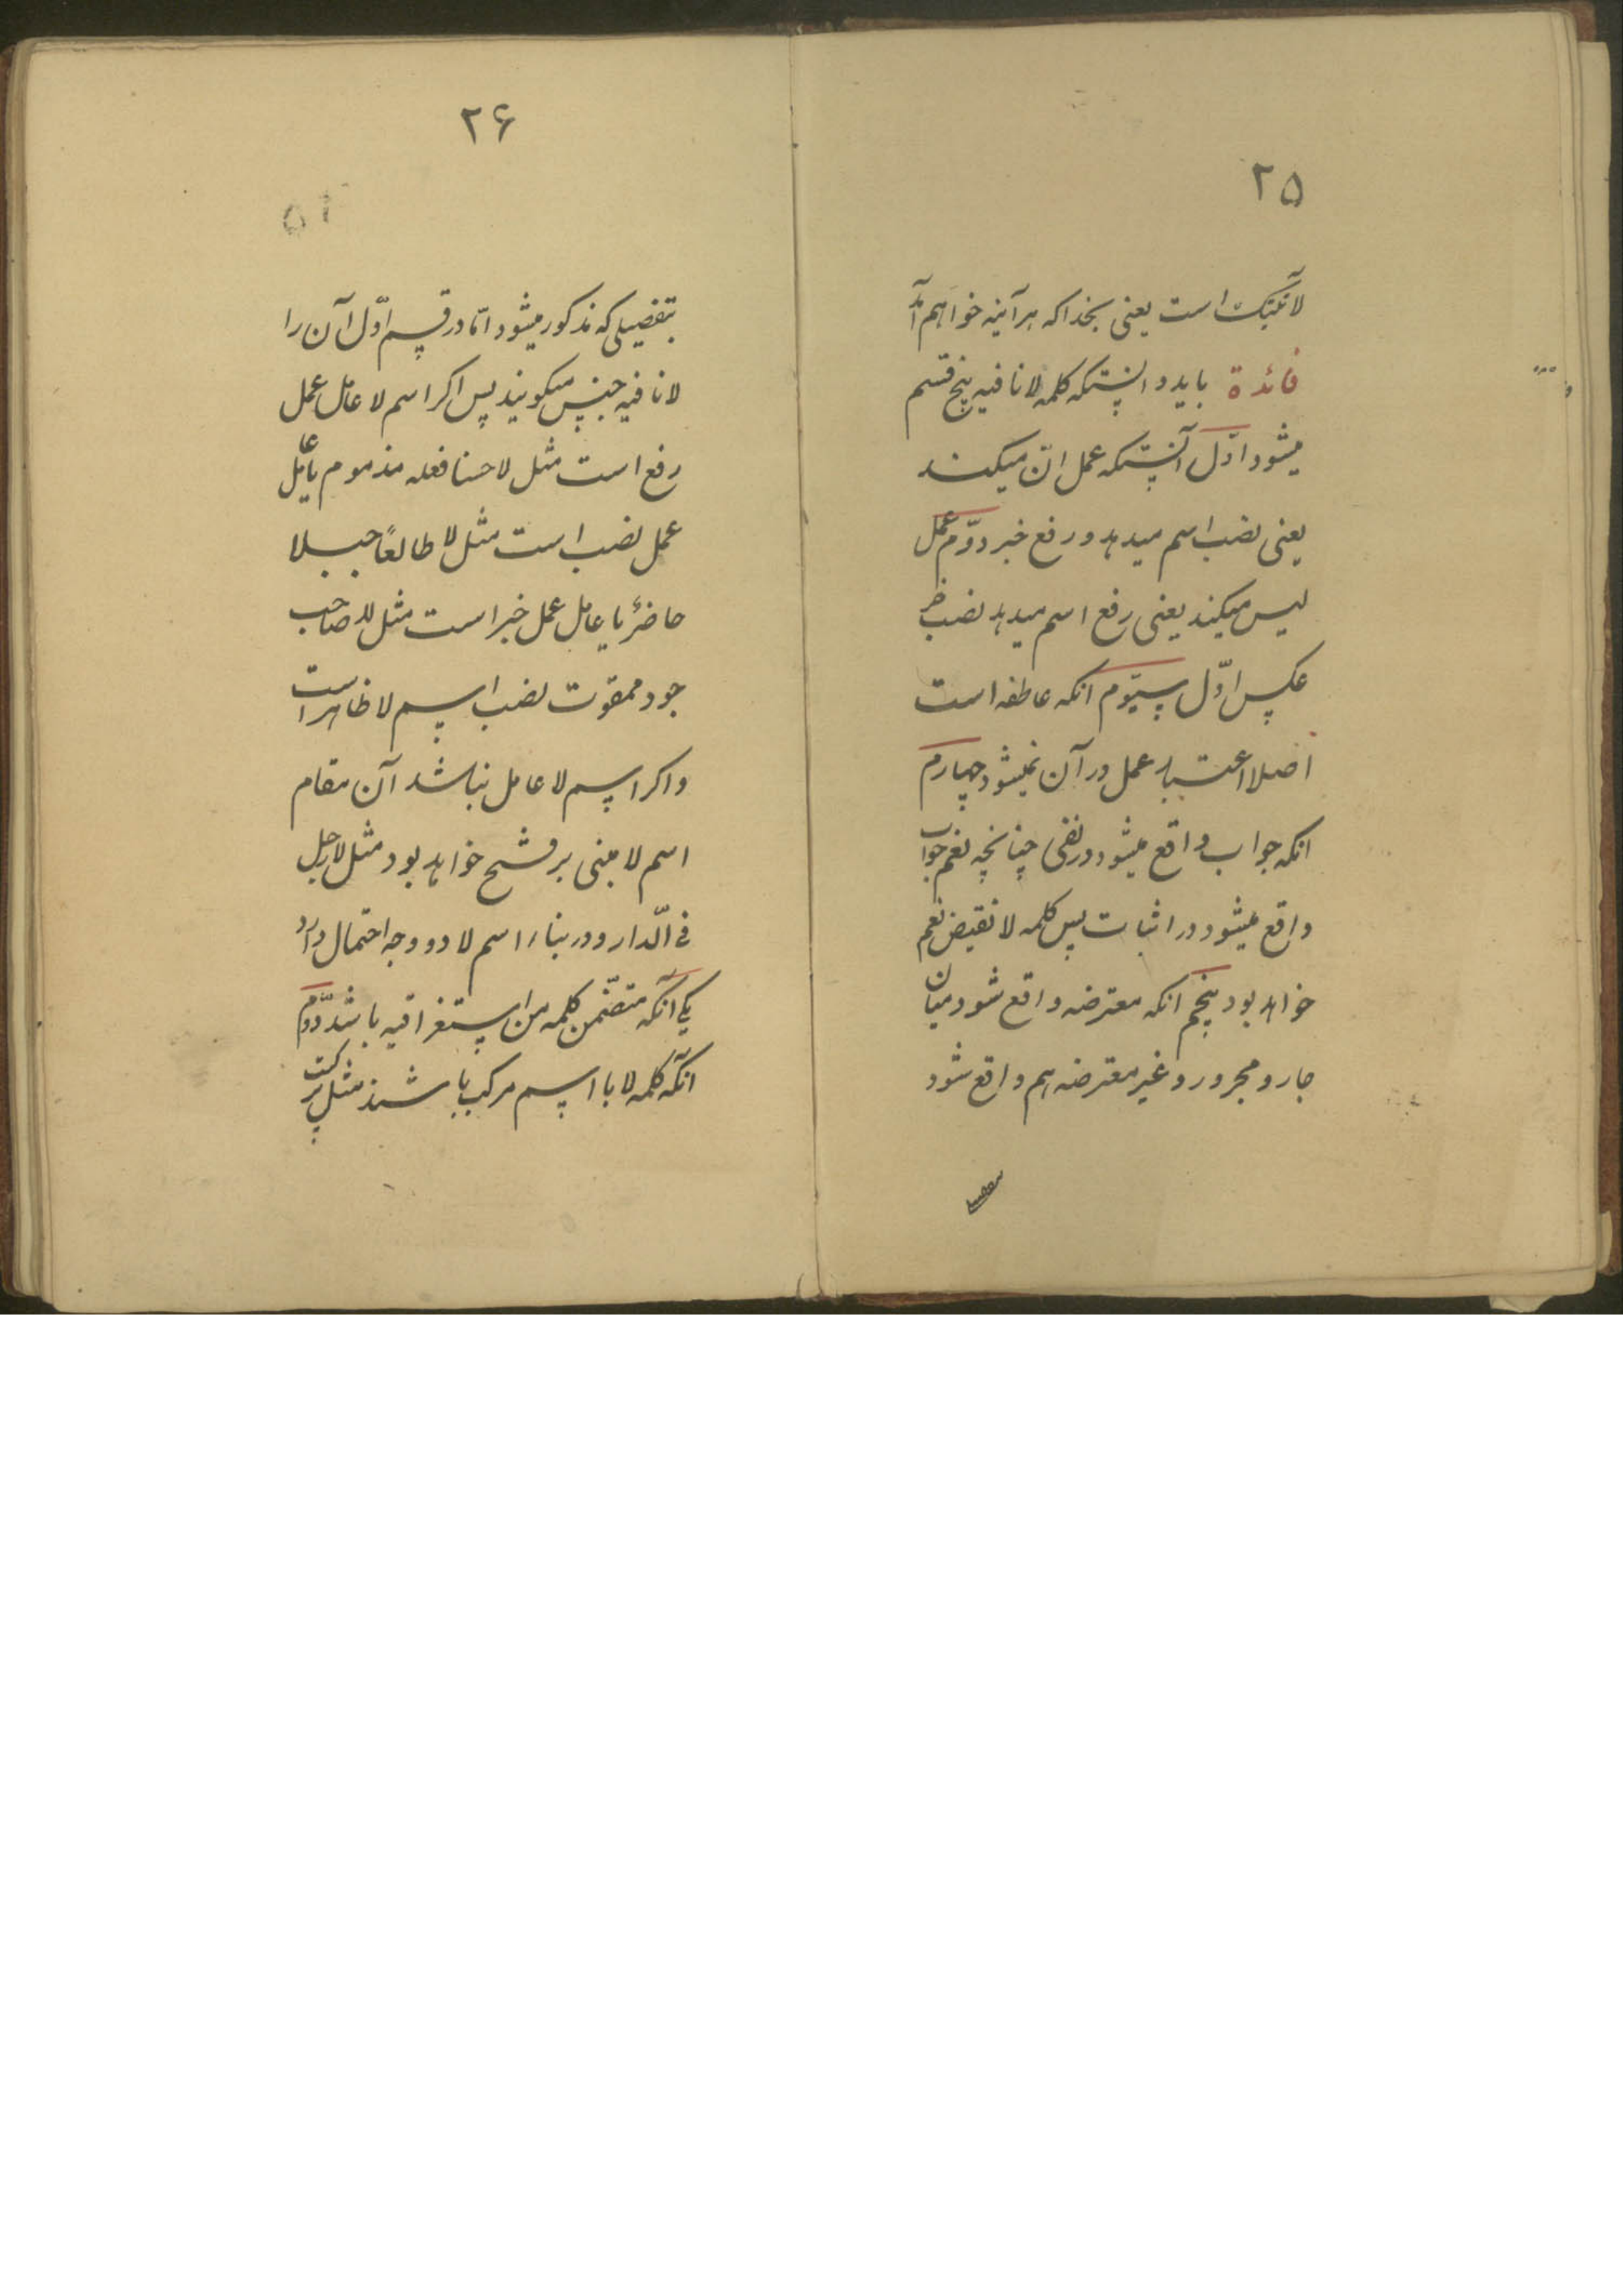 ۲۵
لآتینک است یعنی بخدا که هرآینه خواهم آمد
فائدة باید دانستکه کلمه لا نافیه پنج قسم
میشود اوّل آنستکه عمل انّ میکند
یعنی نصب اسم میدهد و رفع خبر دوّم عمل
لیس میکند یعنی رفع اسم میدهد نصب خبر
عکس اوّل سیّوم انکه عاطفه است
اصلا اعتبار عمل در آن نمیشود چهارم
انکه جواب واقع میشود در نفی چنانچه نعم جواب
واقع میشود در اثبات پس کلمه لا نقیض نعم
خواهد بود پنجم انکه معترضه واقع شود میان
جار و مجرور و غیر معترضه هم واقع شود
۲۶
بتفصیلی که مذکور میشود امّا در قسم اوّل آن را
لا نافیه جنس میکویند پس اکر اسم لا عامل عمل
رفع است مثل لا حسنا فعله مذموم یا عامل
عمل نصب است مثل لا طالعًا جبلا
حاضرٌ یا عامل عمل خبر است مثل لا صاحب
جود ممقوت نصب اسم لا ظاهر است
و اکر اسم لا عامل نباشد آن مقام
اسم لا مبنی بر فتح خواهد بود مثل لا رجل
فی الّدار و در بناء اسم لا دو وجه احتمال دارد
یکی انکه متضمّن کلمه من استغراقیه باشد دّوم
انکه کلمه لا با اسم مرکب باشند مثل